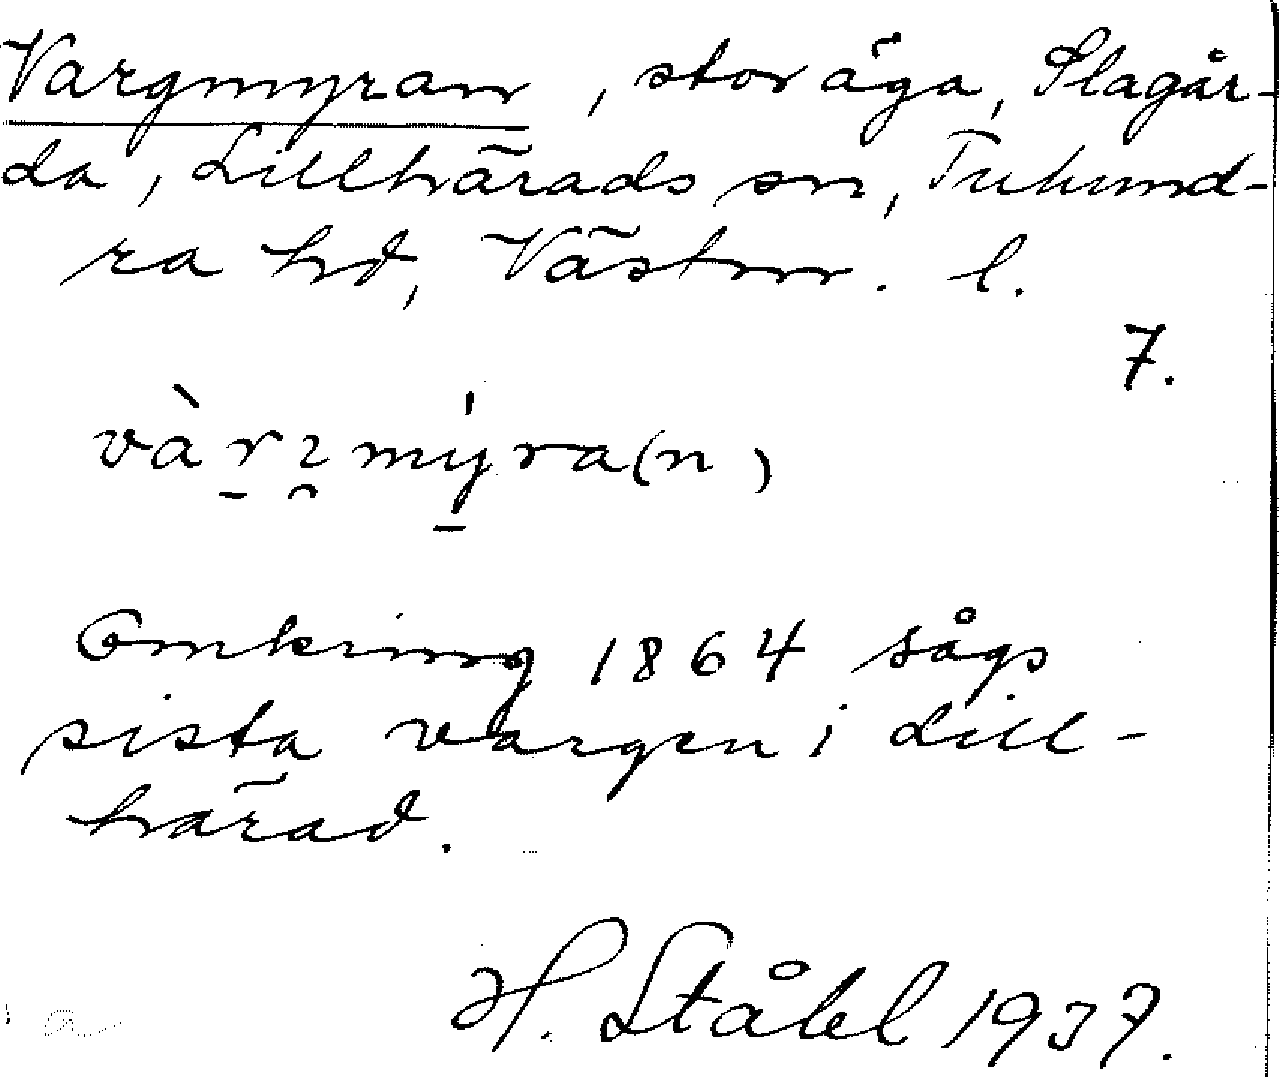 Vargmyran, stor äga, Slagår-
da, Lillhärads sn, Tuhund-
ra hd, Västm. l.
7.
vàrꝛmýra(n)
Omkring 1864 sågs
sista vargen i Lill-
härad.
H. Ståhl 1937.